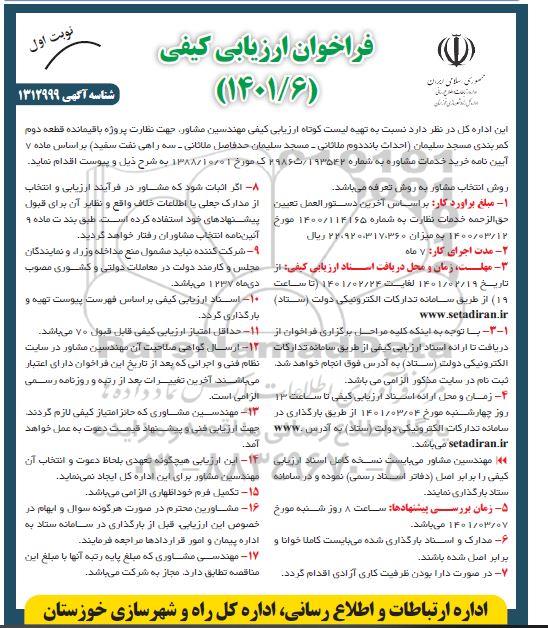 نوبت اول
فراخوان ارزیابی کیفی
(۱۴۰۱/۶)
جمهوری اسلامی ایران
شناسه آگهی ۱۳۱۲۹۹۹
این اداره کل در نظر دارد نسبت به تهیه لیست کوتاه ارزیابی کیفی مهندسین مشاور، جهت نظارت پروژه باقیمانده قطعه دوم
کمربندی مسجد سلیمان (احداث باند دوم ملاثانی ـ مسجد سلیمان حدفاصل ملاثانی ـ سه راهی نفت سفید) بر اساس ماده ۷
آیین نامه خرید خدمات مشاوره به شماره ۱۹۳۵۴۲/ت۲۹۸۶ک مورخ ۱۳۸۸/۱۰/۰۱ به شرح ذیل و پیوست اقدام نماید.
روش انتخاب مشاور به روش تعرفه می‌باشد.
۱- مبلغ برآورد کار: بر اساس آخرین دستورالعمل تعیین
حق‌الزحمه خدمات نظارت به شماره ۱۴۰۰/۱۱۴۱۶۵ مورخ
۱۴۰۰/۰۳/۱۲ به میزان ۲۲.۹۲۰.۳۱۷.۳۶۰ ریال
۲- مدت اجرای کار: ۷ ماه
۳- مهلت، زمان و محل دریافت اسناد ارزیابی کیفی: از
تاریخ ۱۴۰۱/۰۲/۱۹ لغایت ۱۴۰۱/۰۲/۲۴ (تا ساعت
۱۹) از طریق سامانه تدارکات الکترونیکی دولت (ستاد)
www.setadiran.ir
۳-۱- با توجه به اینکه کلیه مراحل برگزاری فراخوان از
دریافت تا ارائه اسناد ارزیابی کیفی از طریق سامانه تدارکات
الکترونیکی دولت (ستاد) به آدرس فوق انجام خواهد شد.
ثبت نام در سایت مذکور الزامی می باشد.
۴- زمان و محل ارائه اسناد ارزیابی کیفی تا ساعت ۱۳
روز چهارشنبه مورخ ۱۴۰۱/۰۳/۰۴ از طریق بارگذاری در
سامانه تدارکات الکترونیکی دولت (ستاد) به آدرس www.
setadiran.ir می‌باشد.
مهندسین مشاور می‌بایست نسخه کامل اسناد ارزیابی
کیفی را برابر اصل (دفاتر اسناد رسمی) نموده و در سامانه
ستاد بارگذاری نمایند.
۵- زمان بررسی پیشنهادها: ساعت ۸ روز شنبه مورخ
۱۴۰۱/۰۳/۰۷ می‌باشد.
۶- مدارک و اسناد بارگذاری شده می‌بایست کاملا خوانا و
برابر اصل شده باشند.
۷- در صورت دارا بودن ظرفیت کاری آزادی اقدام گردد.
۸- اگر اثبات شود که مشاور در فرآیند ارزیابی و انتخاب
از مدارک جعلی یا اطلاعات خلاف واقع و نظایر آن برای قبول
پیشنهادهای خود استفاده کرده است. طبق بند ت ماده ۹
آئین‌نامه انتخاب مشاوران رفتار خواهد گردید.
۹- شرکت کننده نباید مشمول منع مداخله وزراء و نمایندگان
مجلس و کارمند دولت در معاملات دولتی و کشوری مصوب
دی‌ماه ۱۲۳۷ می‌باشد.
۱۰- اسناد ارزیابی کیفی براساس فهرست پیوست تهیه و
بارگذاری گردد.
۱۱- حداقل امتیاز ارزیابی کیفی قابل قبول ۷۰ می‌باشد.
۱۲- ارسال گواهی صلاحیت آن مهندسین مشاور در سایت
نظام فنی و اجرایی که بعد از تاریخ این فراخوان دارای اعتبار
می‌باشند. آخرین تغییرات بعد از رتبه و روزنامه رسمی
الزامی است.
۱۳- مهندسین مشاوری که حائز امتیاز کیفی لازم گردند.
جهت ارزیابی فنی و پیشنهاد قیمت دعوت به عمل خواهد
آمد.
۱۴- این ارزیابی هیچگونه تعهدی بلحاظ دعوت و انتخاب آن
مهندسین مشاور برای این اداره کل ایجاد نمی‌نماید.
۱۵- تکمیل فرم خوداظهاری الزامی می‌باشد.
۱۶- مشاورین محترم در صورت هرگونه سوال و ابهام در
خصوص این ارزیابی، قبل از بارگذاری در سامانه ستاد به
اداره پیمان و امور قراردادها مراجعه فرمایند.
۱۷- مهندسی مشاوری که مبلغ پایه رتبه آنها با مبلغ این
مناقصه تطابق دارد. مجاز به شرکت می‌باشد.
اداره ارتباطات و اطلاع رسانی، اداره کل راه و شهرسازی خوزستان